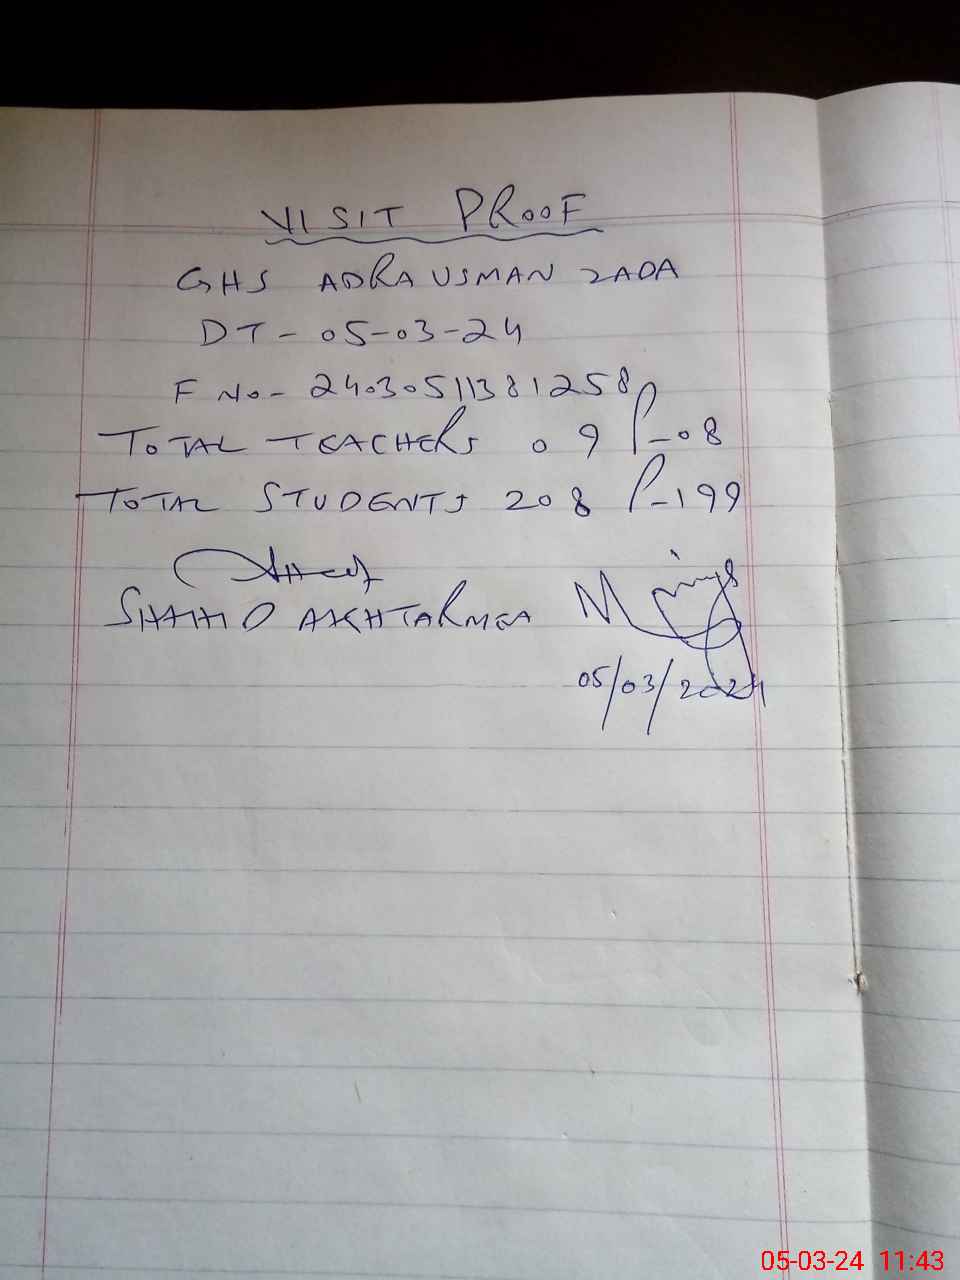 VISIT PROOF
GHS ADRA USMAN ZADA
DT - 05-03-24
F No - 24030511381258
TOTAL TEACHERS 09 P-08
TOTAL STUDENTS 208 P-199
SHAHID AKHTAR MEA
05/03/2024
05-03-24 11:43